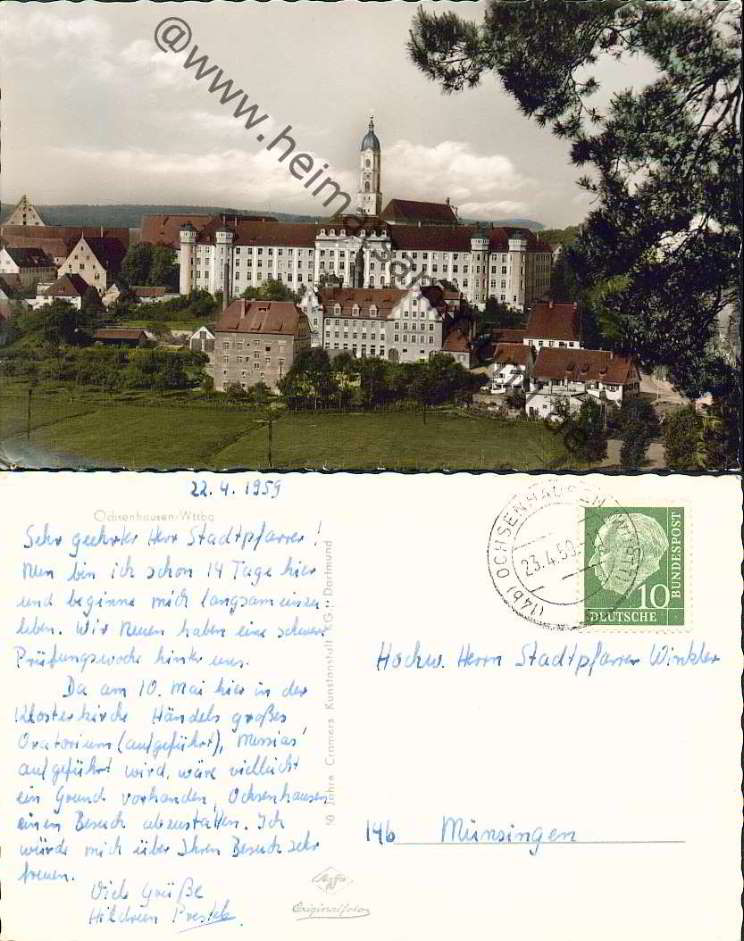 @www.heimatsammlung.de
22.4.1959
Ochsenhausen-Wttbg
Sehr geehrter Herr Stadtpfarrer!
Nun bin ich schon 14 Tage hier
und beginne mich langsam einzu-
leben. Wir Neuen haben eine schwere
Prüfungswoche hinter uns.
Da am 10. Mai hier in der
Klosterkirche Händels großes
Oratorium (aufgeführt) „Messias"
aufgeführt wird, wäre vielleicht
ein Grund vorhanden, Ochsenhausen
einen Besuch abzustatten. Ich
würde mich über Ihren Besuch sehr
freuen.
Viele Grüße
50 Jahre Cramers Kunstanstalt KG · Dortmund
Agfa
Originalfoto
(14b) OCHSENHAUSEN (WÜRTT)
23.4.59
10
DEUTSCHE
BUNDESPOST
Hochw. Herrn Stadtpfarrer Winkler
14b Münsingen